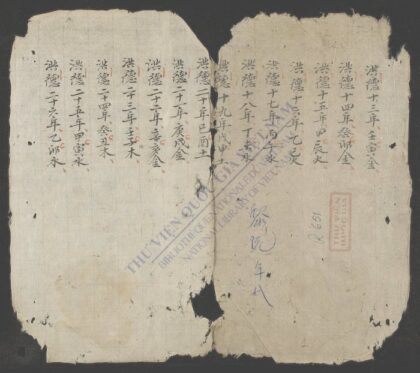 洪德十三年壬寅金
洪德十四年癸卯金
洪德十五年甲辰火
洪德十六年乙巳火
洪德十七年丙午水
洪德十八年丁未水
洪德十九年
洪德二十年己酉土
洪德二十一年庚戌金
洪德二十二年辛亥金
洪德二十三年壬子木
洪德二十四年癸丑木
洪德二十五年甲寅水
洪德二十六年乙卯水
年代
THƯ VIỆN QUỐC GIA VIỆT NAM
BIBLIOTHÈQUE NATIONALE DU VIETNAM
NATIONAL LIBRARY OF VIETNAM